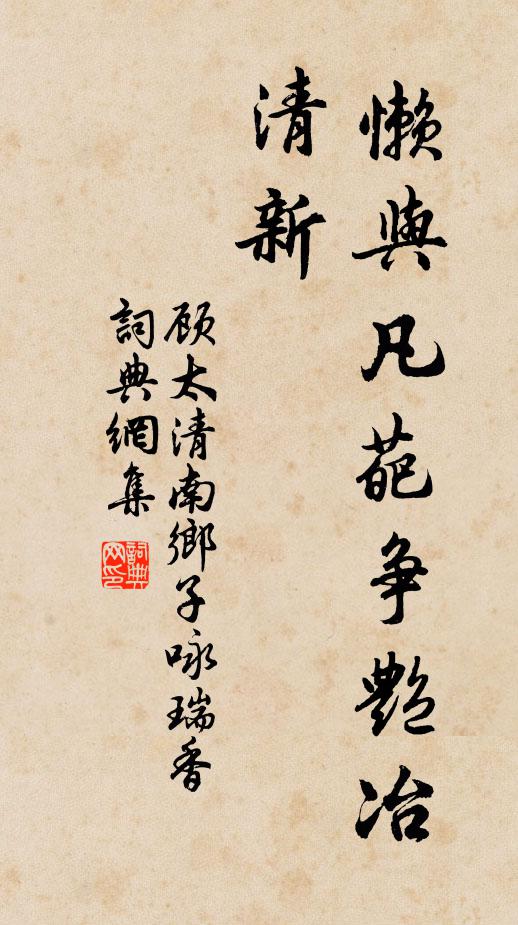 懶與凡葩爭艷冶
清新
顧太清南鄉子咏瑞香
詞典網集
詞典网印